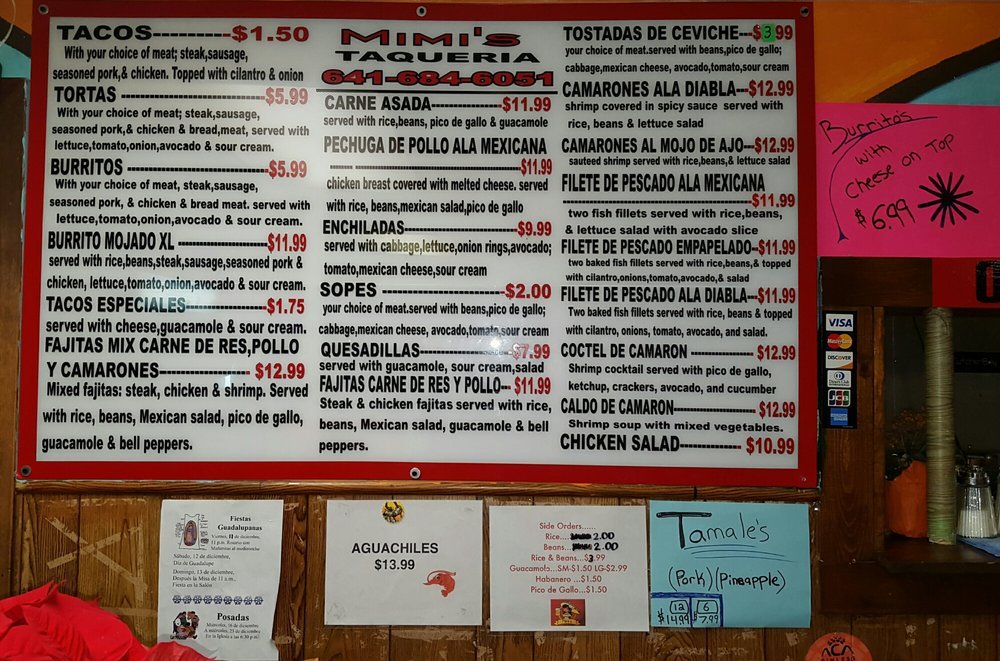 TACOS-----------$1.50
With your choice of meat; steak,sausage,
seasoned pork,& chicken. Topped with cilantro & onion
TORTAS --------------------$5.99
With your choice of meat; steak,sausage,
seasoned pork,& chicken & bread,meat, served with
lettuce,tomato,onion,avocado & sour cream.
BURRITOS --------------------$5.99
With your choice of meat, steak,sausage,
seasoned pork, & chicken & bread meat. served with
lettuce,tomato,onion,avocado & sour cream.
BURRITO MOJADO XL ---------------$11.99
served with rice,beans,steak,sausage,seasoned pork &
chicken, lettuce,tomato,onion,avocado & sour cream.
TACOS ESPECIALES-------------$1.75
served with cheese,guacamole & sour cream.
FAJITAS MIX CARNE DE RES,POLLO
Y CAMARONES-------------- $12.99
Mixed fajitas: steak, chicken & shrimp. Served
with rice, beans, Mexican salad, pico de gallo,
guacamole & bell peppers.
MIMI'S
TAQUERIA
641-684-6051
CARNE ASADA---------------$11.99
served with rice,beans, pico de gallo & guacamole
PECHUGA DE POLLO ALA MEXICANA
--------------------------------$11.99
chicken breast covered with melted cheese. served
with rice, beans,mexican salad,pico de gallo
ENCHILADAS-----------------$9.99
served with cabbage,lettuce,onion rings,avocado;
tomato,mexican cheese,sour cream
SOPES -------------------$2.00
your choice of meat.served with beans,pico de gallo;
cabbage,mexican cheese, avocado,tomato,sour cream
QUESADILLAS---------------$7.99
served with guacamole, sour cream,salad
FAJITAS CARNE DE RES Y POLLO--$11.99
Steak & chicken fajitas served with rice,
beans, Mexican salad, guacamole & bell
peppers.
TOSTADAS DE CEVICHE---$3.99
your choice of meat.served with beans,pico de gallo;
cabbage,mexican cheese, avocado,tomato,sour cream
CAMARONES ALA DIABLA---$12.99
shrimp covered in spicy sauce served with
rice, beans & lettuce salad
CAMARONES AL MOJO DE AJO---$12.99
sauteed shrimp served with rice,beans,& lettuce salad
FILETE DE PESCADO ALA MEXICANA
--------------------------------$11.99
two fish fillets served with rice,beans,
& lettuce salad with avocado slice
FILETE DE PESCADO EMPAPELADO--$11.99
two baked fish fillets served with rice,beans,& topped
with cilantro,onions,tomato,avocado,& salad
FILETE DE PESCADO ALA DIABLA---$11.99
Two baked fish fillets served with rice, beans & topped
with cilantro, onions, tomato, avocado, and salad.
COCTEL DE CAMARON -------------- $12.99
Shrimp cocktail served with pico de gallo,
ketchup, crackers, avocado, and cucumber
CALDO DE CAMARON----------------$12.99
Shrimp soup with mixed vegetables.
CHICKEN SALAD------------- $10.99
Burritos
with
Cheese on Top
$6.99
VISA
MasterCard
DISCOVER
Diners Club
JCB
Fiestas
Guadalupanas
Viernes, 11 de diciembre,
11 p.m. Rosario con
Mañanitas al medianoche
Sábado, 12 de diciembre,
Día de Guadalupe
Domingo, 13 de diciembre,
Después la Misa de 11 a.m.,
Fiesta en la Salón
Posadas
Miércoles, 16 de diciembre
A miércoles, 23 de diciembre
En la Iglesia a las 6:30 p.m.
AGUACHILES
$13.99
Side Orders......
Rice.... 2.00
Beans... 2.00
Rice & Beans...$3.99
Guacamole...SM-$1.50 LG-$2.99
Habanero ...$1.50
Pico de Gallo...$1.50
Tamale's
(Pork) (Pineapple)
12 6
$14.99 7.99
ACA